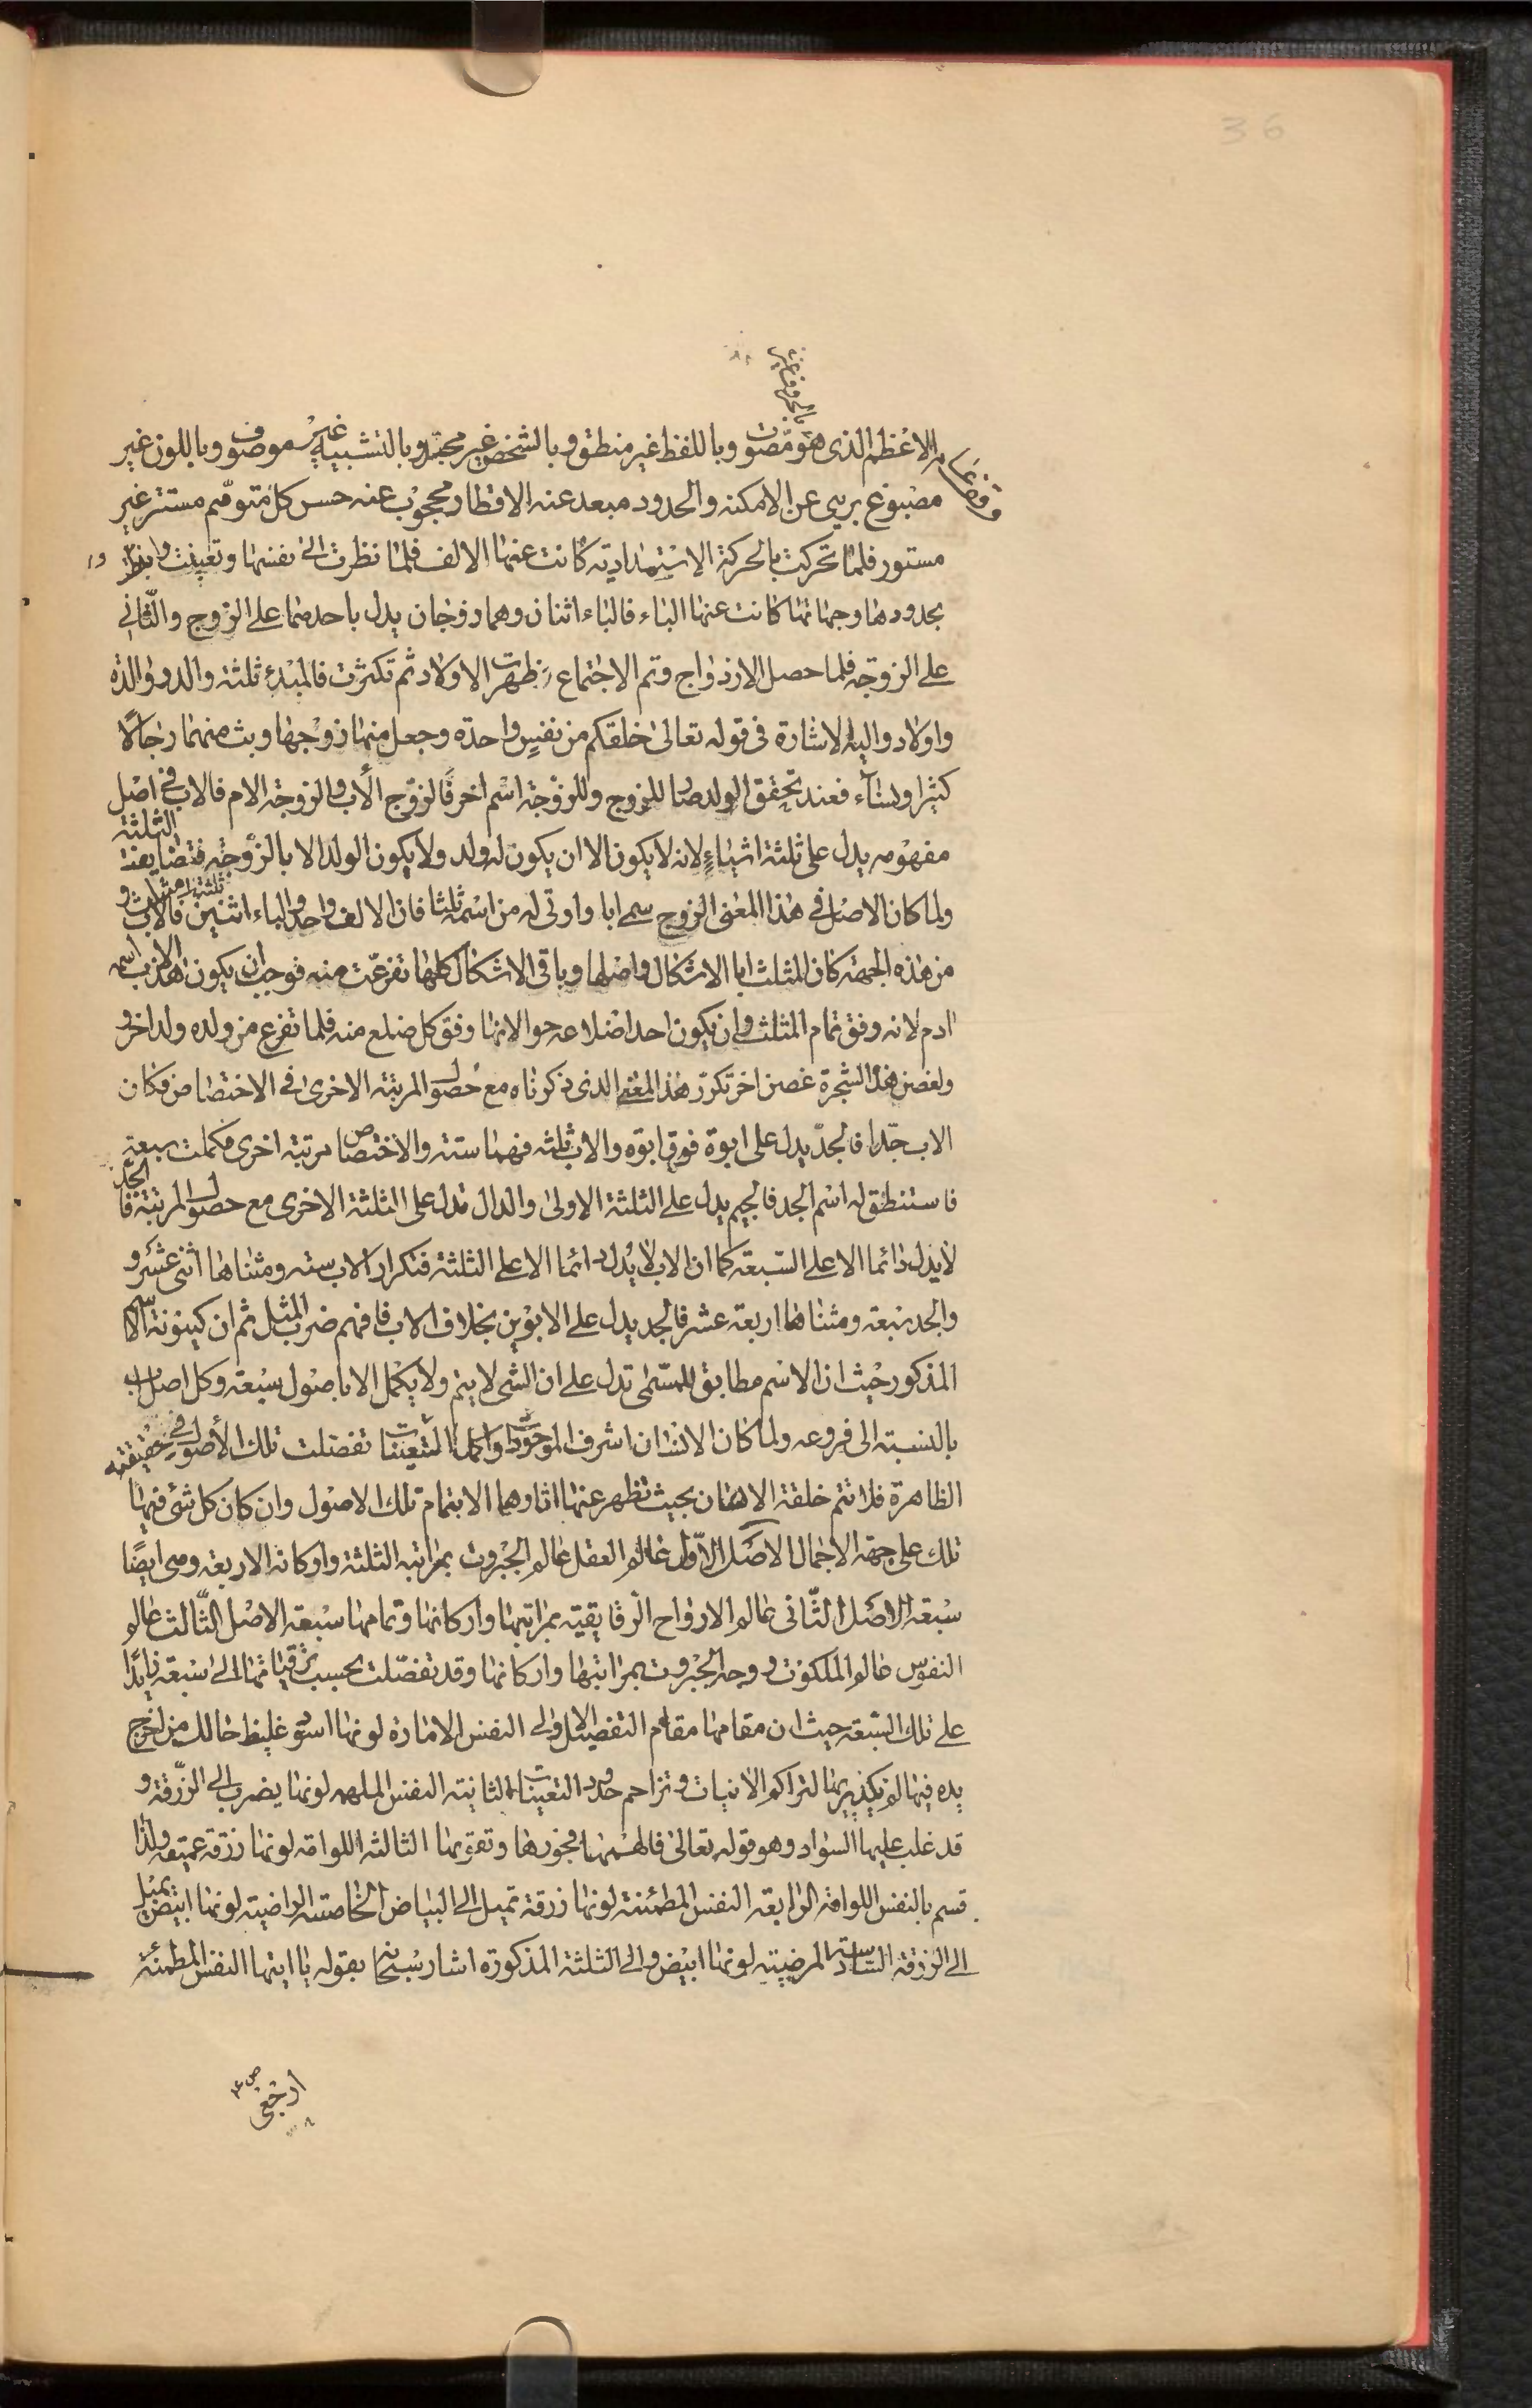 36
الاعظم الذى هو مصوت وباللفظ غير منطق وبالشخص غير مجسد وبالتشبيه غير موصوف وباللون غير
مصبوغ برىء عن الامكنه والحدود مبعد عنه الاقطار محجوب عنه حس كل متوهم مستتر غير
مستور فلما تحركت بالحركة الاستمدادية كانت عنها الالف فلما نظرت الى نفسها وتعينت
بحدودها وجهاتها كانت عنها الباء فالباء اثنان وهما زوجان يدل باحدهما على الزوج والثانى
على الزوجة فلما حصل الازدواج وتم الاجتماع ظهرت الاولاد ثم تكثرت فالمبدء ثلثة والد ووالدة
واولاد واليه الاشارة فى قوله تعالى خلقكم من نفس واحدة وجعل منها زوجها وبث منهما رجالا
كثيرا ونساء فعند تحقق الولد صار للزوج وللزوجة اسم اخر فالزوج الاب والزوجة الام فالاب فى اصل
مفهومه يدل على ثلثة اشياء لانه لا يكون الا ان يكون له ولد ولا يكون الولد الا بالزوجة فتضايفت الثلثة
ولما كان الاصل فى هذا المعنى الزوج سمى ابا واوتى له من اسمه ثلثا فان الالف واحد والباء اثنين فالاب ثلثة و
من هذه الجهة كان المثلث ابا الاشكال واصلها وباقى الاشكال كلها تفرعت منه فوجب ان يكون اسم
ادم لانه وفق تمام المثلث وان يكون احد اضلاعه حوا لانها وفق كل ضلع منه فلما تفرع من ولده ولد اخر و
ولغصن هذه الشجرة غصن اخر تكرر هذا المعنى الذى ذكرناه مع حصول المرتبة الاخرى فى الاختصاص فكان
الاب جدا فالجد يدل على ابوة فوق ابوة والاب ثلثة فهما ستة والاختصاص مرتبة اخرى فكملت سبعة
فاستنطق له اسم الجد فالجيم يدل على الثلثة الاولى والدال تدل على الثلثة الاخرى مع حصول المرتبة فالجد
لا يدل دائما الا على السبعة كما ان الاب لا يدل دائما الا على الثلثة فتكرار الاب ستة ومثناها اثنى عشر و
والجد سبعة ومثناها اربعة عشر فالجد يدل على الابوين بخلاف الاب فافهم ضرب المثل ثم ان كينونة
المذكور حيث ان الاسم مطابق للمسمى تدل على ان الشى لا يتم ولا يكمل الا باصول سبعة وكل اصل
بالنسبة الى فروعه ولما كان الانسان اشرف الموجودات واكمل المتعينات تفصلت تلك الاصول فى حقيقته
الظاهرة فلا تتم خلقة الانسان بحيث تظهر عنها اثارها الا بتمام تلك الاصول وان كان كل شئ فيها
تلك على جهة الاجمال الاصل الاول عالم العقل عالم الجبروت بمراتبه الثلثة واركانه الاربعة وهى ايضا
سبعة الاصل الثانى عالم الارواح الرقايقية بمراتبها واركانها وتمامها سبعة الاصل الثالث عالم
النفوس عالم الملكوت ووجه الجبروت بمراتبها واركانها وقد تفصلت بحسب ترقياتها الى سبعة زايدا
على تلك السبعة حيث ان مقامها مقام التفصيل الاولى النفس الامارة لونها اسود غليظ حالك من اخرج
يده فيها لم يكد يريها لتراكم الانيات وتزاحم حدود التعينات الثانية النفس الملهمه لونها يضرب الى الزرقة و
قد غلب عليها السواد وهو قوله تعالى فالهمها فجورها وتقويها الثالثه اللوامة لونها زرقة عميقة ولذا
قسم بالنفس اللوامة الرابعة النفس المطمئنة لونها زرقة تميل الى البياض الخامسة الراضية لونها ابيض يميل
الى الزرقة السادسة المرضية لونها ابيض والى الثلثة المذكورة اشار سبحانه بقوله يا ايتها النفس المطمئنة
ارجعى